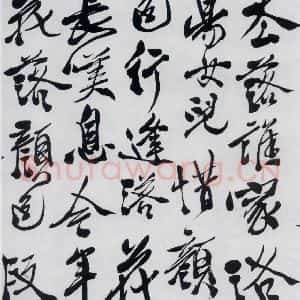 去落誰家洛
陽女兒惜顏
色行逢落花
長嘆息今年
花落顏色改
shufawang.CN